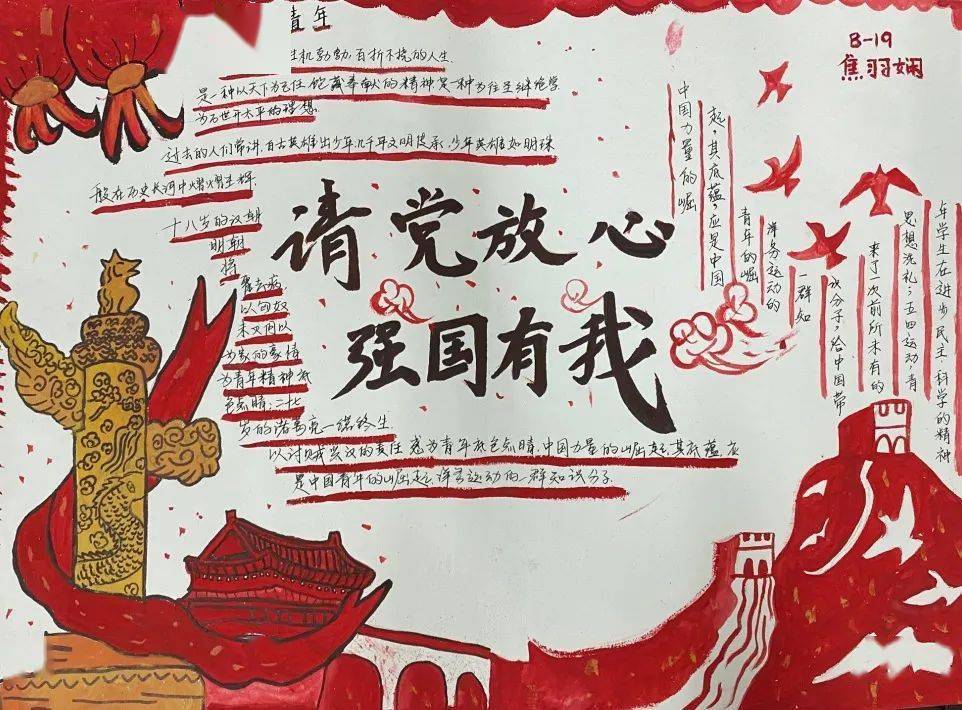 青年
生机勃勃,百折不挠的人生.
是一种以天下为己任,饱藏奉献的精神是一种为往圣继绝学
为万世开太平的理想
过去的人们常讲,自古英雄出少年,几千年文明传承,少年英雄如明珠
般在历史长河中熠熠生辉.
十八岁的汉朝
明朝
将
霍去病
以匈奴
未灭何以
为家的豪情
为青年精神底
色点睛;二七
岁的诸葛亮一缕终生.
以讨贼兴汉的责任
为青年底色点睛.中国力量的崛起,其底蕴,应
是中国青年的崛起,洋务运动的一群知识分子.
请党放心
强国有我
B-19
焦羽娴
中国力量的崛
起,其底蕴,应是中国
青年的崛
洋务运动的
一群知
识分子,给中国带
来了一次前所未有的
思想洗礼;五四运动,青
年学生在进步民主,科学的精神